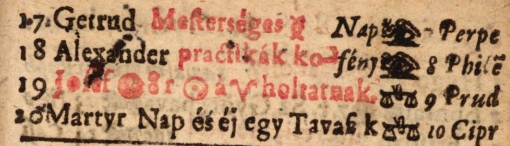 17 Getrud Mesterséges Nap Perpe
18 Alexander practikák ko- fény 8 Philē
19 Josef 8 r á ♈ holtatnak. ♎ 9 Prud
20 Martyr Nap és éj egy Tavaſz k ♎ 10 Cipr